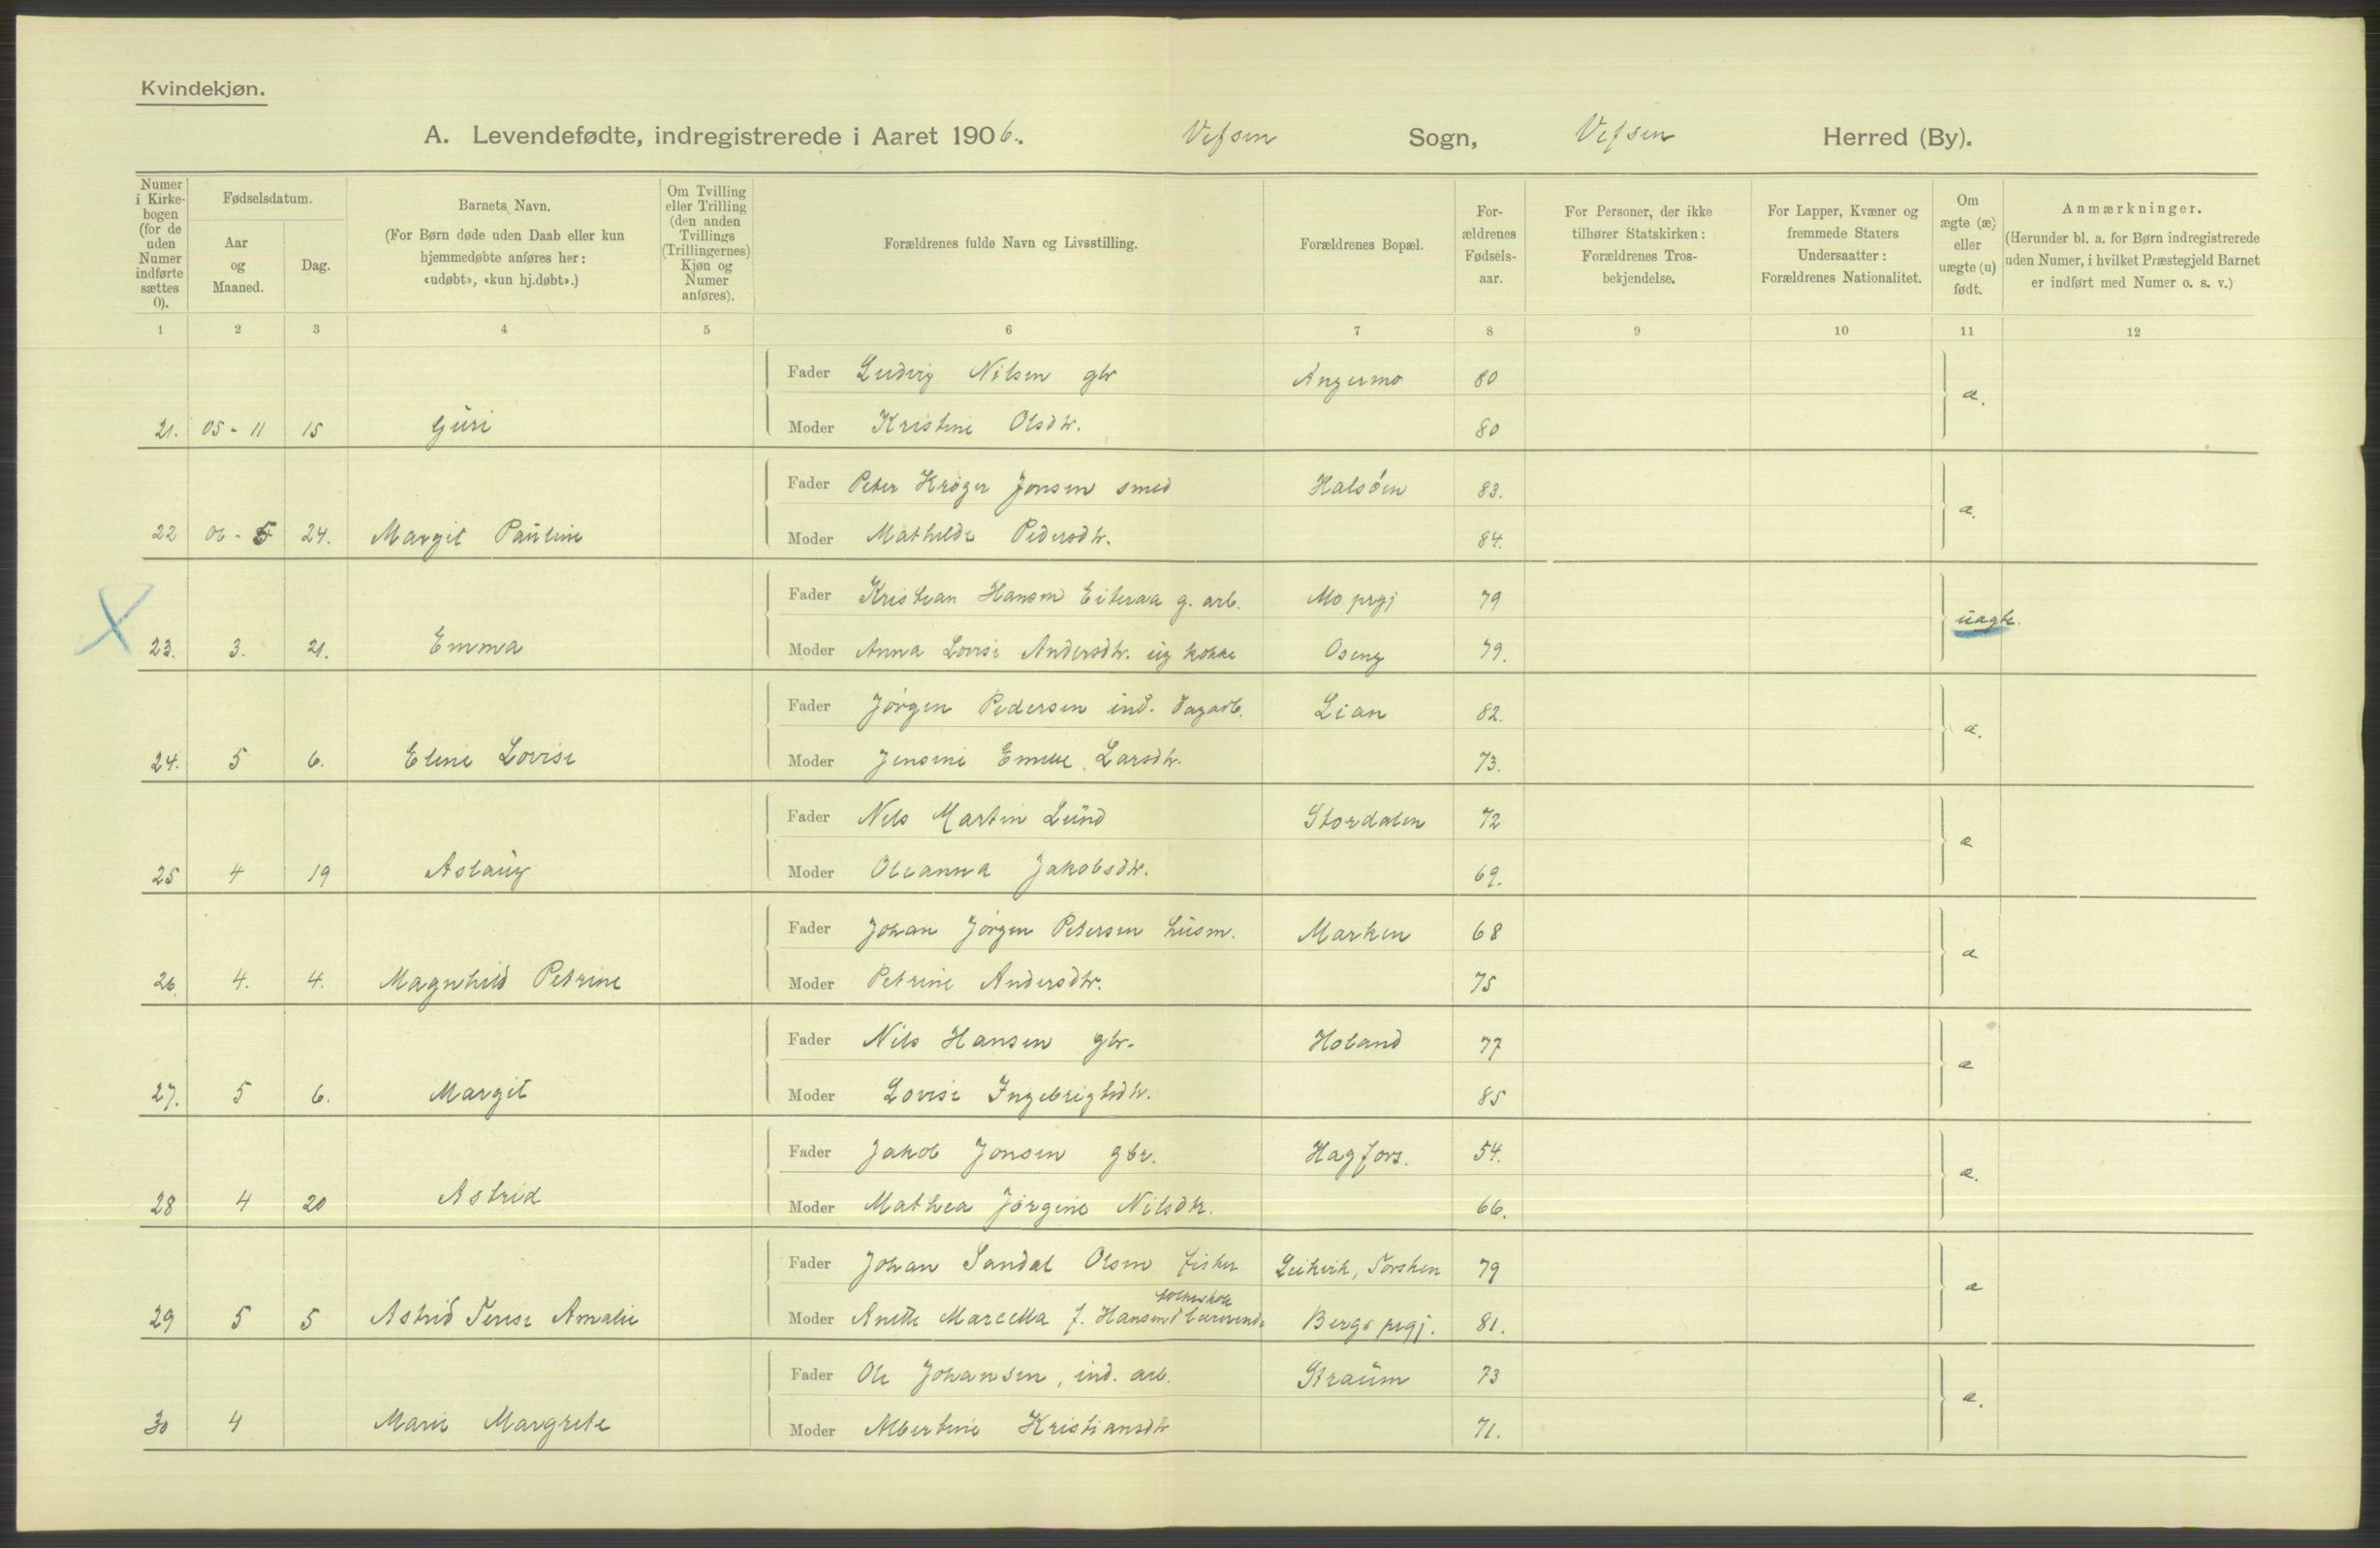 Kvindekjøn.
A. Levendefødte, indregistrerede i Aaret 1906. Vefsen Sogn, Vefsen Herred (By).
Numer i Kirkebogen (for de uden Numer indførte sættes 0).
Fødselsdatum.
Aar og Maaned.
Dag.
Barnets Navn.
(For Børn døde uden Daab eller kun hjemmedøbte anføres her: «udøbt», «kun hj.døbt».)
Om Tvilling eller Trilling (den anden Tvillings (Trillingernes) Kjøn og Numer anføres).
Forældrenes fulde Navn og Livsstilling.
Forældrenes Bopæl.
Forældrenes Fødselsaar.
For Personer, der ikke tilhører Statskirken: Forældrenes Trosbekjendelse.
For Lapper, Kvæner og fremmede Staters Undersaatter: Forældrenes Nationalitet.
Om ægte (æ) eller uægte (u) født.
Anmærkninger.
(Herunder bl. a. for Børn indregistrerede uden Numer, i hvilket Præstegjeld Barnet er indført med Numer o. s. v.)
1 2 3 4 5 6 7 8 9 10 11 12
Fader Ludvig Nilsen gbr Angermo 80 æ.
21. 05-11 15 Guri Moder Kristine Olsdtr. 80
Fader Peter Krøger Jonsen smed Halsøen 83. æ.
22 06-5 24. Margit Pauline Moder Mathilde Pedersdtr. 84.
Fader Kristian Hansen Eiteraa g. arb. Mo prgj 79 uægte.
23. 3. 21. Emma Moder Anna Lovise Andersdtr. ug kokke Oseng 79.
Fader Jørgen Pedersen ind. dagarb. Lian 82. æ.
24. 5 6. Eline Lovise Moder Jensine Emelie Larsdtr. 73.
Fader Nils Martin Lund Stordalen 72 æ
25 4 19 Aslaug Moder Oleanna Jakobsdtr. 69.
Fader Johan Jørgen Petersen husm. Marken 68 æ
26. 4. 4. Magnhild Petrine Moder Petrine Andersdtr. 75
Fader Nils Hansen gbr. Holand 77 æ
27. 5 6. Margit Moder Lovise Ingebrigtsdtr. 85
Fader Jakob Jonsen gbr. Hagfors. 54. æ.
28 4 20 Astrid Moder Mathea Jørgine Nilsdtr. 66.
Fader Johan Sandal Olsen fisker Leikvik, Torsken 79 æ
29 5 5 Astrid Terese Amalie Moder Anette Marcella f. Hansen Bergs prgj. 81.
Fader Ole Johansen, ind. arb. Straum 73 æ.
30 4 Marie Margrete Moder Albertine Kristiansdtr 71.